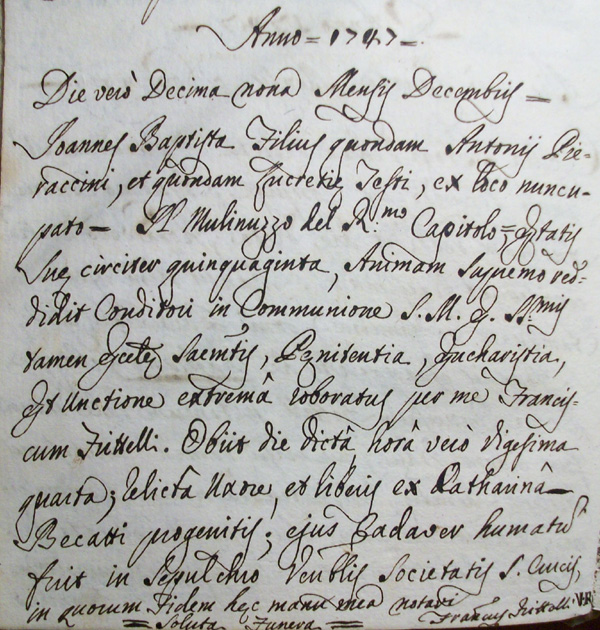 Anno = 1747 =.
Die verò Decima nona Mensis Decembris =
Joannes Baptista Filius quondam Antonij Pie-
raccini, et quondam Lucretię Testi, ex loco nuncu-
pato = Il Mulinuzzo del R.mo Capitolo =, Ętatis
Suę circiter quinquaginta, Animam Supremo red-
didit Conditori in Communione S. M. E. SS.mis
tamen Ecclę Sacmtis, Pęnitentia, Eucharistia,
Et Unctione extremâ roboratus per me Francis-
cum Frittelli. Obiit die dictâ horâ verò vigesima
quarta; relictâ Uxore, et liberis ex Catharinâ
Becatti progenitis; ejus Cadaver humatũ
fuit in Sepulchro Venblis Societatis S. Crucis,
in quorum Fidem hęc manu mea notavi
= Soluta Funera = Franc.s Frittelli